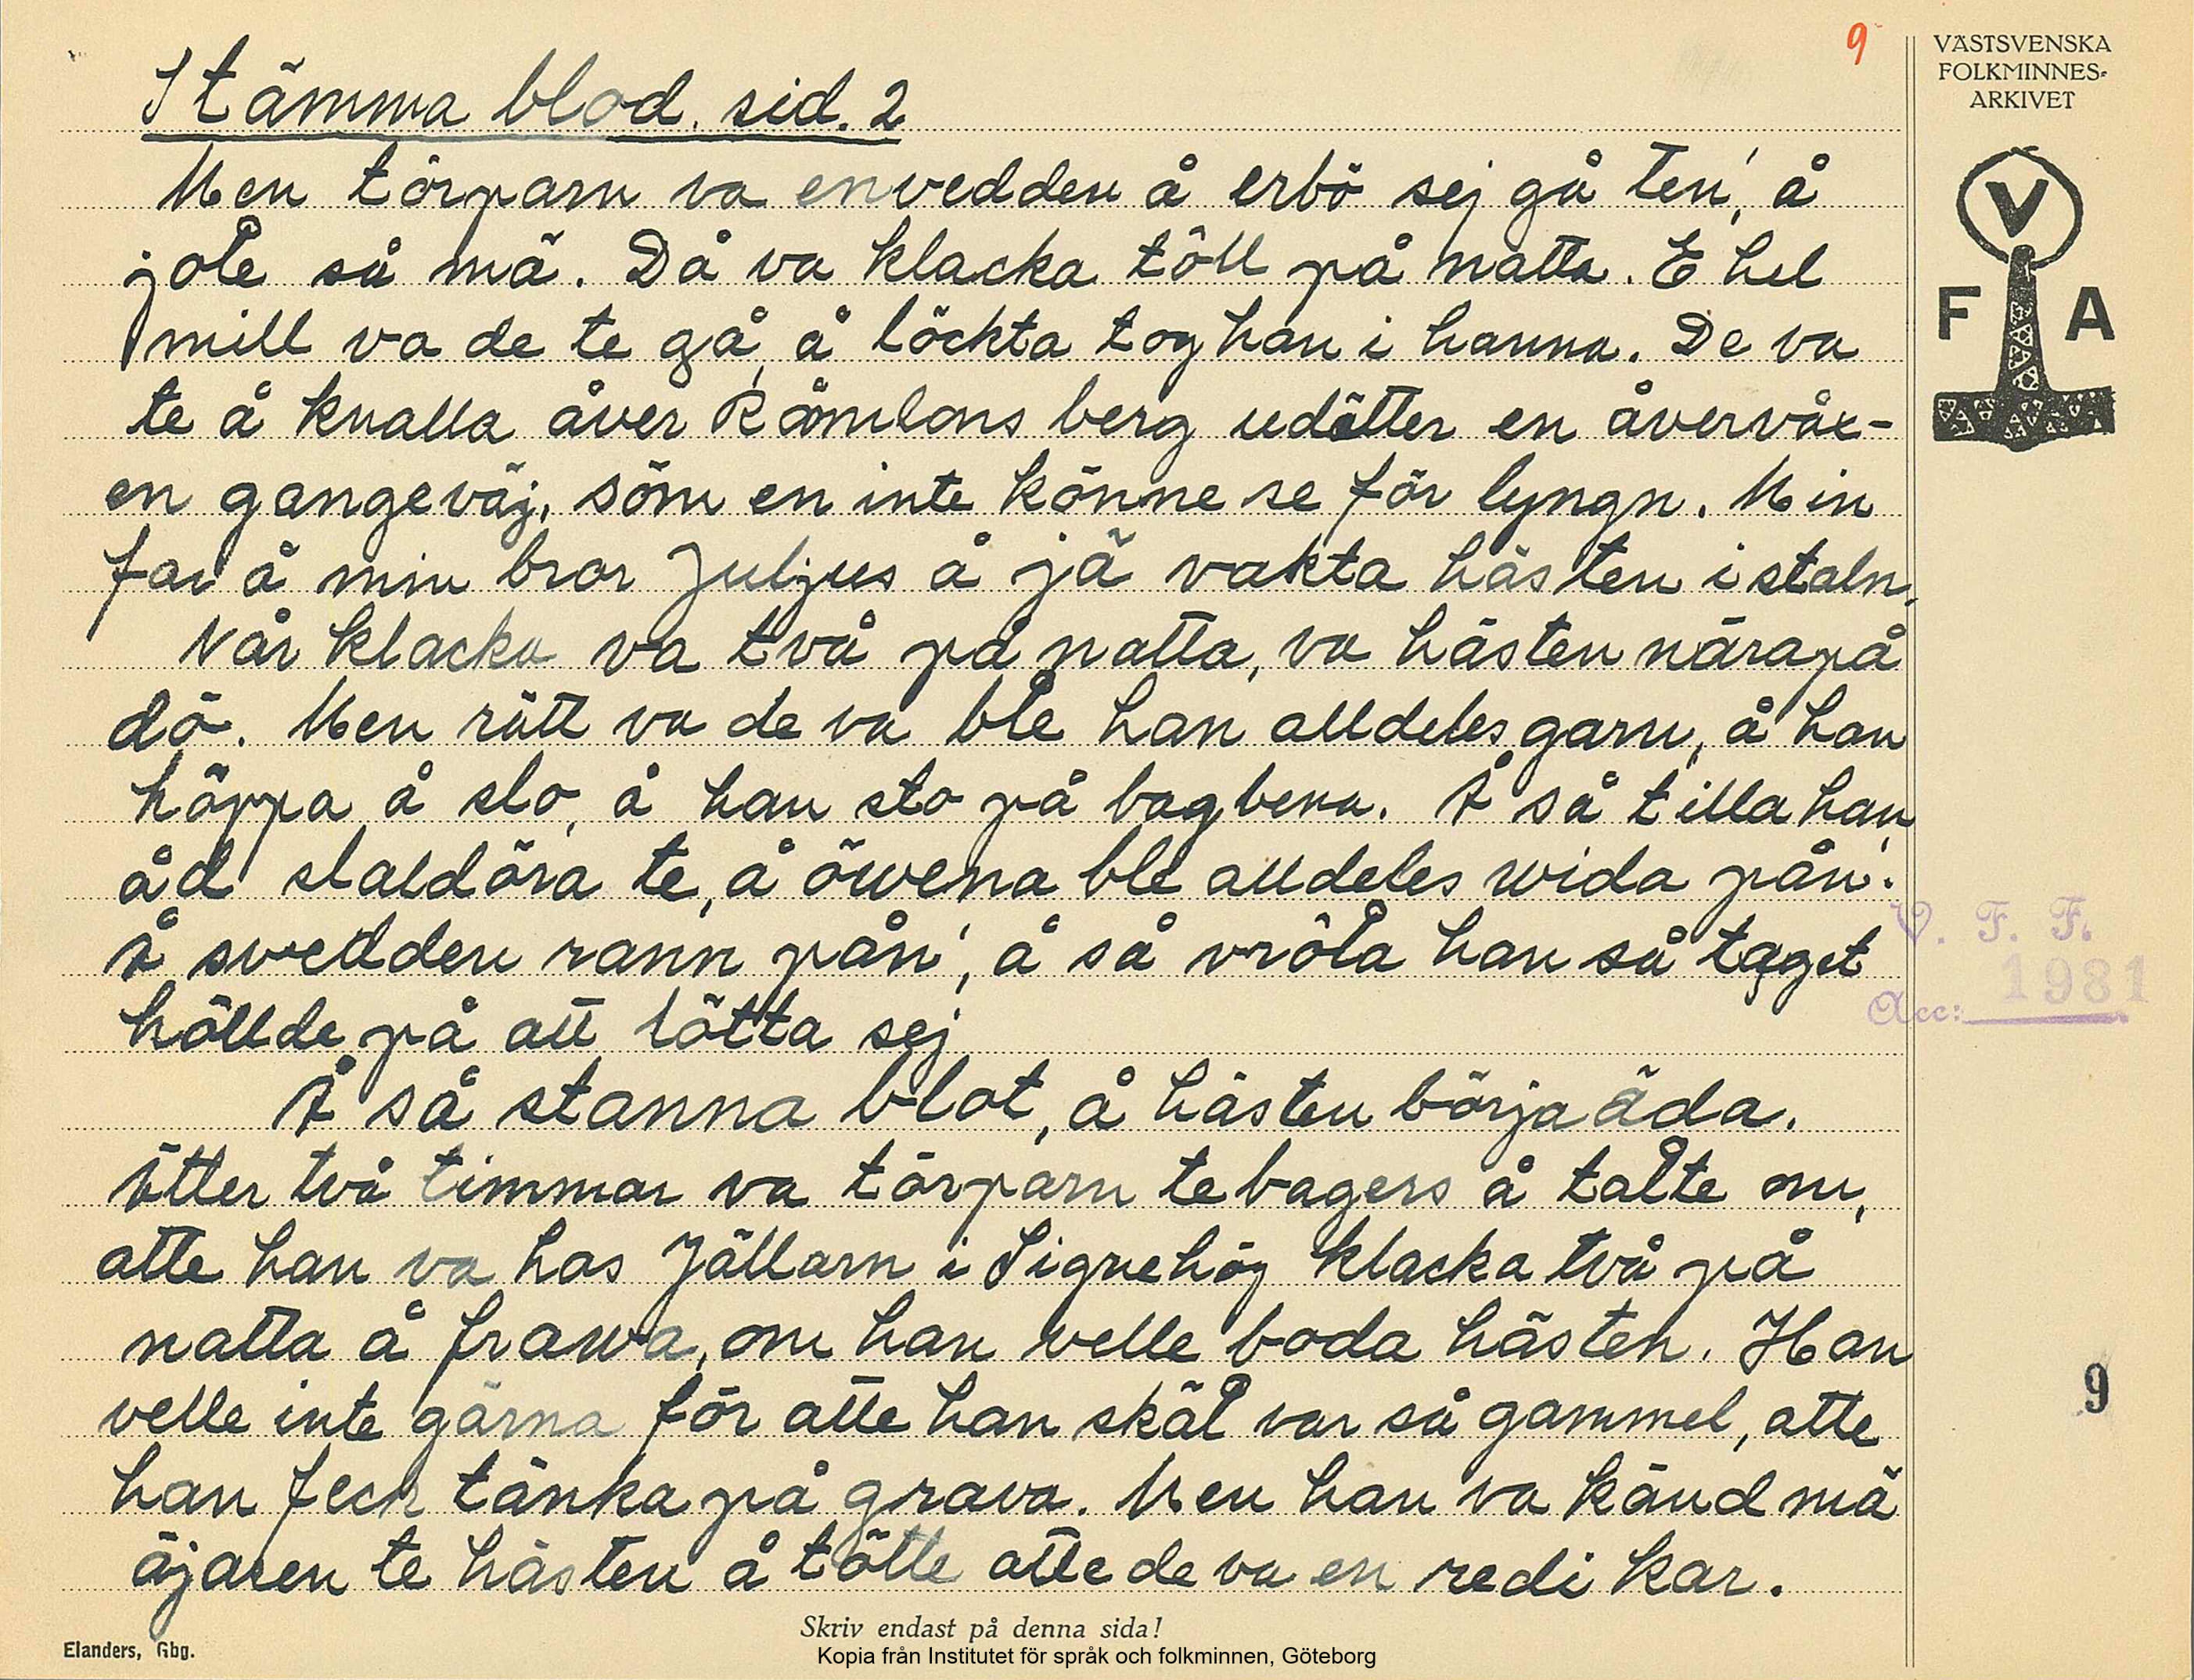 9
VÄSTSVENSKA
FOLKMINNES-
ARKIVET
V
F A
Stämma blod. sid. 2
Men törparn va envedden å erbö sej gå ten', å
jole så mä. Då va klacka töll på natta. E hel
mill va de te gå, å löckta tog han i hanna. De va
te å knalla åver Råmlons berg udätter en åverväx-
en gangeväj, söm en inte könne se för lyngn. Min
far å min bror Juljus å jä vakta hästen i staln.
När klacka va två på natta, va hästen närapå
dö. Men rätt va de va ble han alldeles garn, å han
höppa å slo, å han sto på bagbena. Å så tilla han
åd staldöra te, å öwena ble alldeles wida pån'.
Å swedden rann pån', å så vröla han så taget
höllde på att lötta sej
Å så stanna blot, å hästen börja äda.
Ätter två timmar va törparn tebagers å talte om,
atte han va hos Jällarn i Signehög klacka två på
natta å frawa, om han velle boda hästen. Han
velle inte gärna för atte han skäl var så gammel, atte
han feck tänka på grava. Men han va känd mä
äjaren te hästen å tötte atte de va en redi kar.
V. F. F.
1981
Acc:
9
Skriv endast på denna sida!
Elanders, Gbg.
Kopia från Institutet för språk och folkminnen, Göteborg